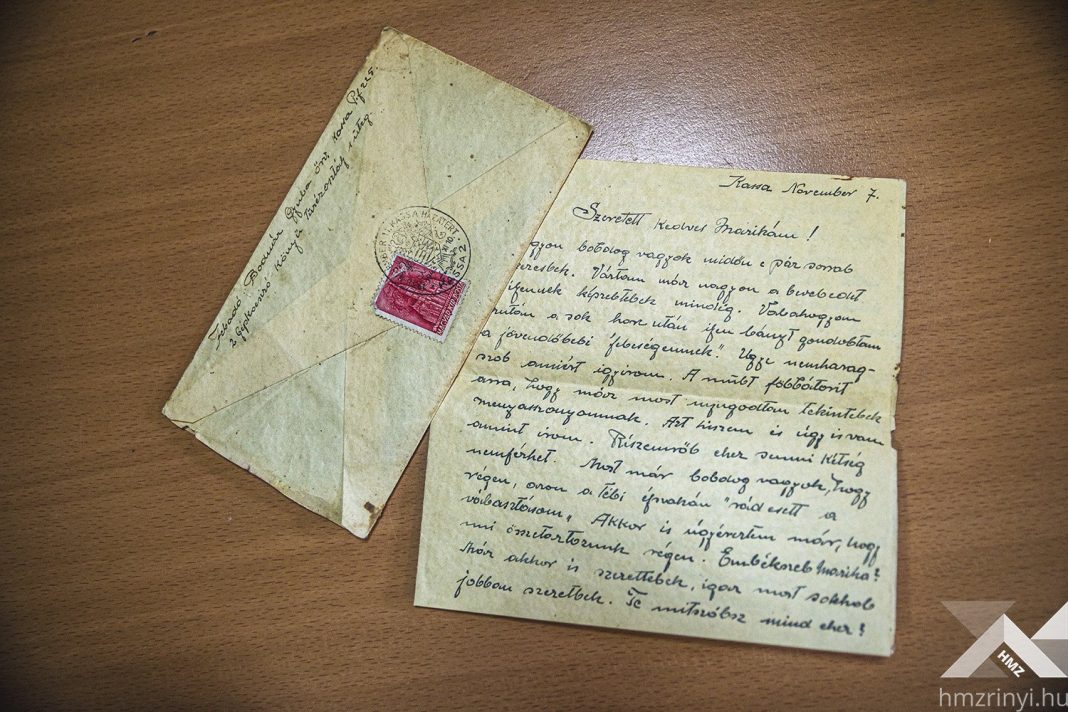 Feladó Bodnár Gyula őrv. Kassa Pf 225.
2 Gépkocsizó Könnyű üteg.
KASSA HAZATÉRT
KASSA 2
MAGYAR KIR. POSTA
Kassa November 7.
Szeretett Kedves Marikám!
gyon boldog vagyok midőn e pár sorod
Vártam már nagyon a leveledet
ilyennek képzeltelek mindég. Valahogyan
a sok harc után ilyen lányt gondoltam
a jövendőbeli feleségemnek." Ugye nemharag-
szol amiért igyirom. A mult
arra, hogy már most nyugodtan tekintelek
menyasszonyomnak. Azt hiszem ez úgy is van
amint irom. Részemről ehez semmi kétség
nemférhet. Most már boldog vagyok, hogy
régen, azon a téli éjszakán "rád esett a
választásom„ Akkor is úgyéreztem már, hogy
mi összetartozunk régen. Emlékszel Marika?
Már akkor is szerettelek, igaz most sokkal
jobban szeretlek. Te mitszólsz mind ehez?
HMZ
hmzrinyi.hu